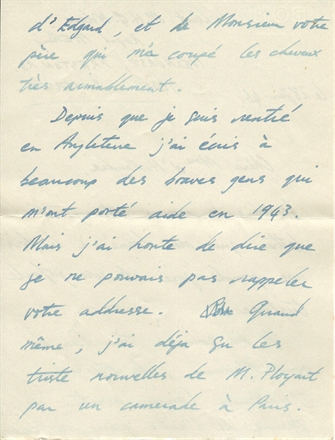 d'Edgard, et de Monsieur votre
père qui m'a coupé les cheveux
très aimablement.
Depuis que je suis rentré
en Angleterre j'ai écris à
beaucoup des braves gens qui
m'ont porté aide en 1943.
Mais j'ai honte de dire que
je ne pouvais pas rappeler
votre addresse. Quand
même, j'ai déja su les
triste nouvelles de M. Ployart
par un camerade à Paris.